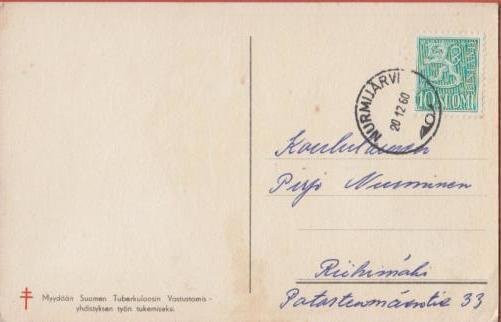 NURMIJÄRVI
20 12 60
10 SUOMI
Koululainen
Pirjo Nurminen
Riihimäki
33
Myydään Suomen Tuberkuloosin Vastustamis-
yhdistyksen työn tukemiseksi.